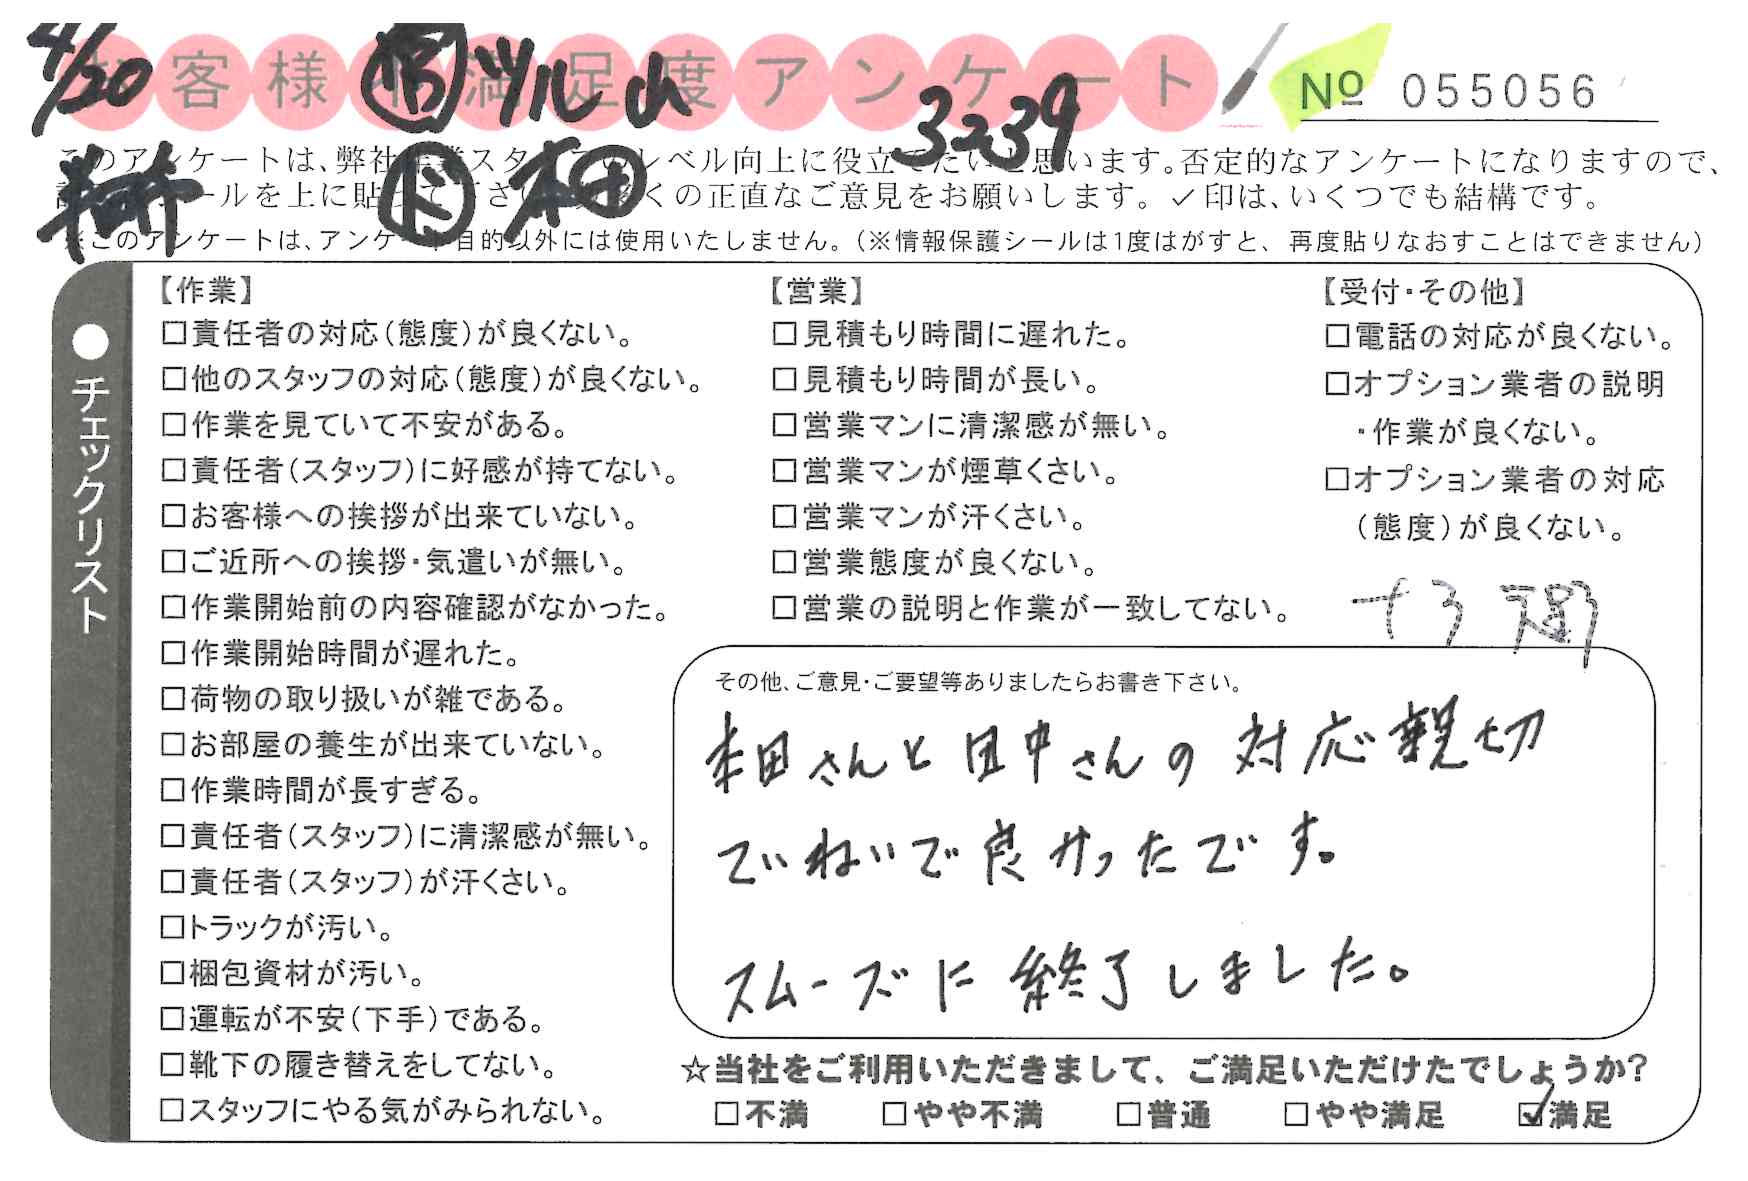 4/20
客様不満足度アンケート
ツル山
3239
№ 055056
本田
このアンケートは、弊社作業スタッフのレベル向上に役立てたいと思います。否定的なアンケートになりますので、
シールを上に貼って下さい。多くの正直なご意見をお願いします。✓印は、いくつでも結構です。
※このアンケートは、アンケート目的以外には使用いたしません。（※情報保護シールは1度はがすと、再度貼りなおすことはできません）
●チェックリスト
【作業】
□責任者の対応（態度）が良くない。
□他のスタッフの対応（態度）が良くない。
□作業を見ていて不安がある。
□責任者（スタッフ）に好感が持てない。
□お客様への挨拶が出来ていない。
□ご近所への挨拶・気遣いが無い。
□作業開始前の内容確認がなかった。
□作業開始時間が遅れた。
□荷物の取り扱いが雑である。
□お部屋の養生が出来ていない。
□作業時間が長すぎる。
□責任者（スタッフ）に清潔感が無い。
□責任者（スタッフ）が汗くさい。
□トラックが汚い。
□梱包資材が汚い。
□運転が不安（下手）である。
□靴下の履き替えをしてない。
□スタッフにやる気がみられない。
【営業】
□見積もり時間に遅れた。
□見積もり時間が長い。
□営業マンに清潔感が無い。
□営業マンが煙草くさい。
□営業マンが汗くさい。
□営業態度が良くない。
□営業の説明と作業が一致してない。
【受付・その他】
□電話の対応が良くない。
□オプション業者の説明
・作業が良くない。
□オプション業者の対応
（態度）が良くない。
その他、ご意見・ご要望等ありましたらお書き下さい。
本田さんと田中さんの対応親切
でいねいで良かったです。
スムーズに終了しました。
☆当社をご利用いただきまして、ご満足いただけたでしょうか?
□不満 □やや不満 □普通 □やや満足 ☑満足